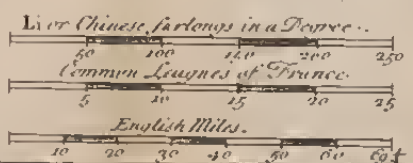 Li or Chinese furlongs in a Degree.
50 100 150 200 250
Common Leagues of France
5 10 15 20 25
English Miles.
10 20 30 40 50 60 69½